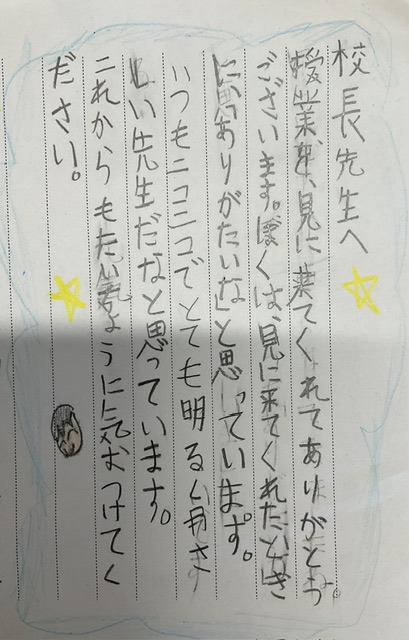 校長先生へ
授業を、見に来てくれてありがとう
ございます。ぼくは、見に来てくれたとき
に「ありがたいな」と思っています。
いつもニコニコでとても明るくやさ
しい先生だなと思っています。
これからも ように気おつけてく
ださい。